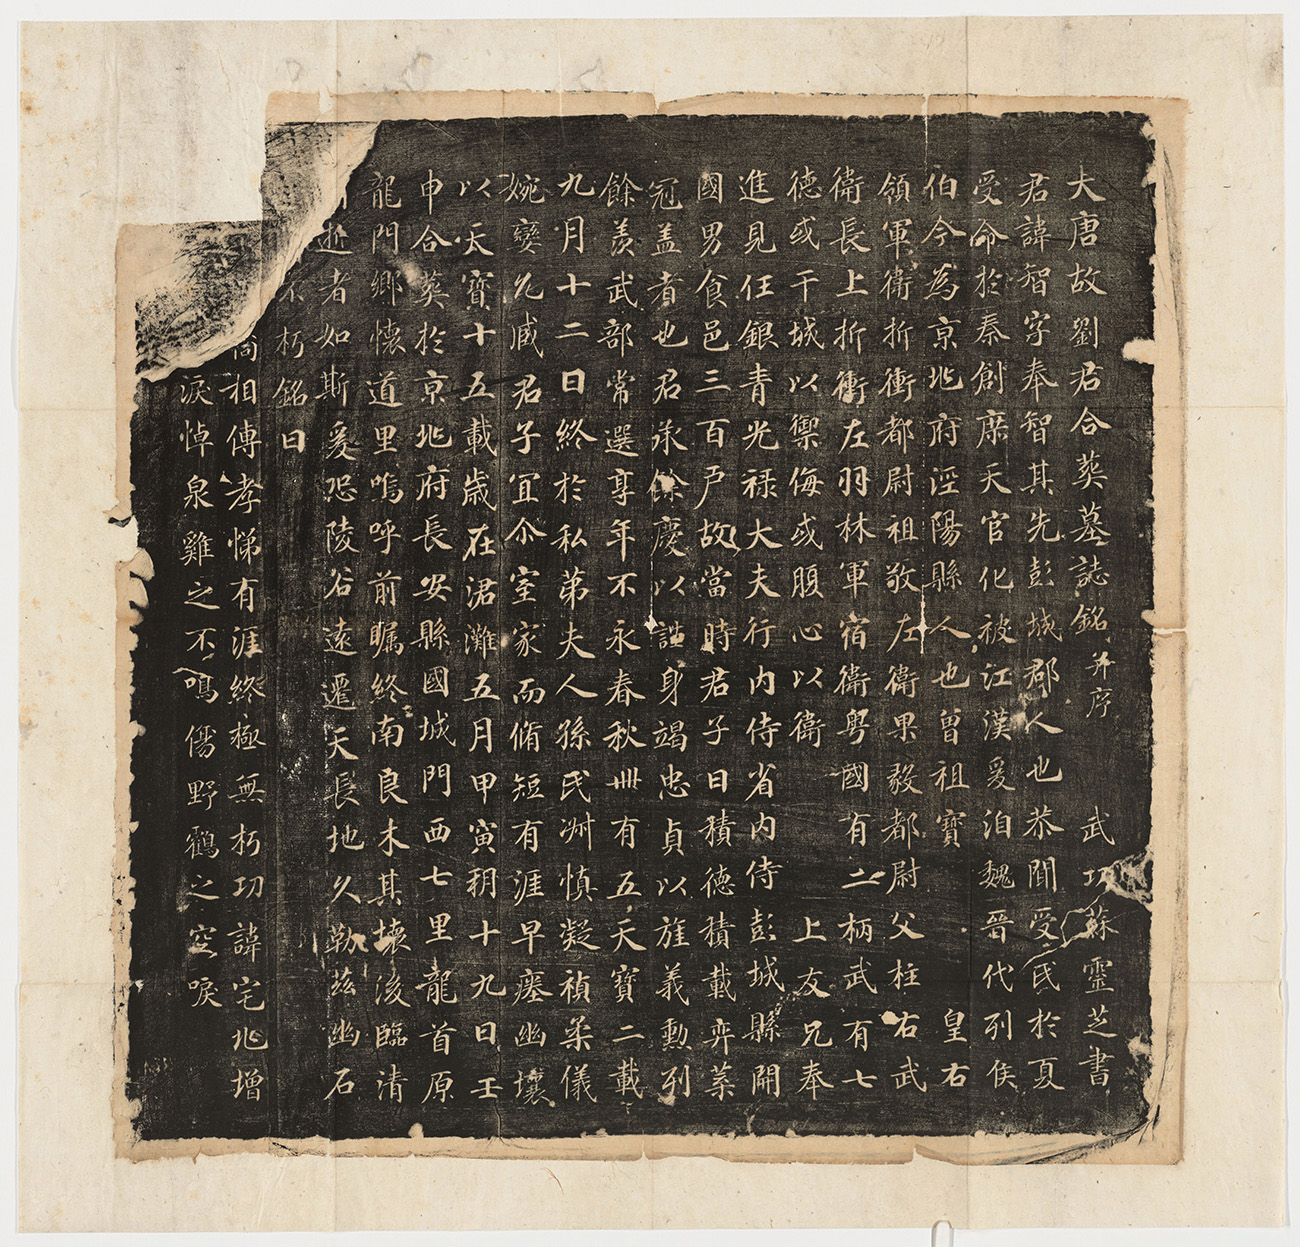 大唐故劉君合葬墓誌銘并序 武功蘇靈芝書
君諱智字奉智其先彭城郡人也恭聞受氏於夏
受命於秦創庶天官化被江漢爰洎魏晉代列侯
伯今為京兆府涇陽縣人也曾祖寶 皇右
領軍衛折衝都尉祖敬左衛果毅都尉父柱右武
衛長上折衝左羽林軍宿衛粤國有二柄武有七
德或干城以禦侮或腹心以衛 上友兄奉
進見任銀青光禄大夫行内侍省内侍彭城縣開
國男食邑三百户故當時君子日積德積載弈葉
冠盖者也君承餘慶以誥身竭忠貞以旌義勳列
餘羨武部常選享年不永春秋卌有五天寶二載
九月十二日終於私第夫人孫氏淋慎凝禎柔儀
婉孌允臧君子宜尒室家而脩短有涯早塟幽壤
以天寶十五載歲在涒灘五月甲寅朔十九日壬
申合葬於京兆府長安縣國城門西七里龍首原
龍門鄉懷道里嗚呼前矚終南良木其壞後臨清
逝者如斯爰恐陵谷遠遷天長地久勒兹幽石
不朽銘曰
尚相傳孝悌有涯終極無朽功諱宅兆增
淚悼泉雞之不鳴傷野鸖之空唳